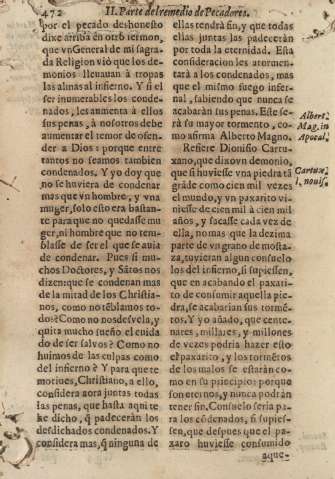 472 II. Parte del remedio de Pecadores.
por el pecado deshonesto
dixe arriba en otro sermon,
que vn General de mi sagra-
da Religion viò que los de-
monios lleuauan à tropas
las almas al infierno. Y si el
ser inumerables los conde-
nados, les aumenta à ellos
sus penas, à nosotros debe
aumentar el temor de ofen-
der a Dios: porque entre
tantos no seamos tambien
condenados. Y yo doy que
no se huviera de condenar
mas que vn hombre, y vna
muger, solo esto era bastan-
te para que no quedasse mu-
ger, ni hombre que no tem-
blasse de ser el que se auia
de condenar. Pues si mu-
chos Doctores, y Sātos nos
dizen: que se condenan mas
de la mitad de los Christia-
nos, como no tēblamos to-
dos? Como no nos desvela, y
quita mucho sueño el cuida
do de ser salvos? Como no
huimos de las culpas como
del infierno? Y para que te
motiues, Christiano, a ello,
considera aora juntas todas
las penas, que hasta aqui te
he dicho, q̄ padeceràn los
desdichados condenados. Y
considera mas, q̄ ninguna de
ellas tendrà fin, y que todas
ellas juntas las padeceràn
por toda la eternidad. Esta
consideracion les atormen-
tarà a los condenados, mas
que el mismo fuego infer-
nal, sabiendo que nunca se
acabaràn sus penas. Este se-
rà su mayor tormento, co-
mo afirma Alberto Magno.
Albert.
Mag. in
Apocal.
Refiere Dionisio Cartu-
xano, que dixo vn demonio,
que si huviesse vna piedra tā
grāde como cien mil vezes
el mundo, y vn paxarito vi-
niesse de cien mil à cien mil
años, y sacasse cada vez de
ella, no mas que la dezima
parte de vn grano de mosta-
za, tuvieran algun consuelo
los del infierno, si supiessen,
que en acabando el paxari-
to de consumir aquella pie-
dra, se acabarian sus tormē-
tos. Y yo añado, que cente-
nares, millares, y millones
de vezes podria hazer esto
el paxarito, y los tormētos
de los malos se estaràn co-
mo en su principio: porque
son eternos, y nunca podràn
tener fin. Consuelo seria pa-
ra los cōdenados, si supies-
sen, que despues que el pa-
xaro huviesse consumido
aque-
Cartux.
l. nouiss.